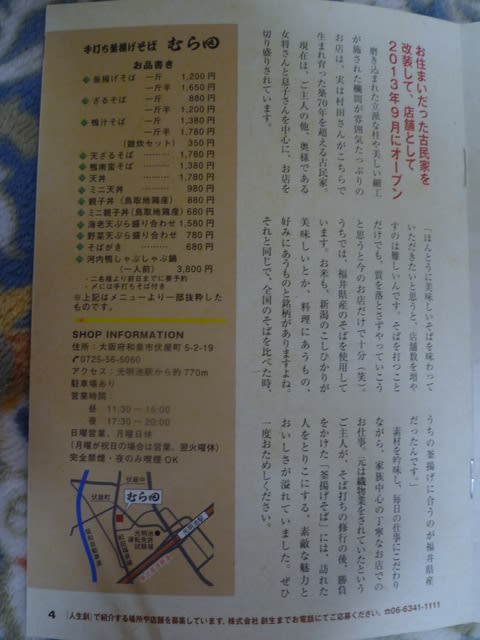 お住まいだった古民家を
改装して、店舗として
2013年9月にオープン
磨き込まれた立派な柱や美しい細工
が施された欄間が雰囲気たっぷりの
お店は、実は村田さんがこちらで
生まれ育った築70年を超える古民家。
現在は、ご主人の他、奥様である
女将さんと息子さんを中心に、お店を
切り盛りされています。
「ほんとうに美味しいそばを味わって
いただきたいと思うと、店舗数を増や
すのは難しいんです。そばを打つこと
だけでも、質を落とさずやっていこう
と思うと今のお店だけで十分(笑)。
うちでは、福井県産のそばを使用して
います。お米も、新潟のこしひかりが
美味しいとか、料理にあうもの、
好みにあうものと銘柄がありますよね。
それと同じで、全国のそばを比べた時、
うちの釜揚げに合うのが福井県産
だったんです。」
素材を吟味し、毎日の仕事にこだわり
ながら、家族中心の丁寧なお店での
お仕事。元は織物業をされていたという
ご主人が、そば打ちの修行の後、勝負
をかけた「釜揚げそば」には、訪れた
人をとりこにする、素敵な魅力と
おいしさが溢れていました。ぜひ
一度おためしください。
手打ち釜揚げそば むら田
お品書き
◆釜揚げそば 一斤 1,200円
一斤半 1,650円
◆ざるそば 一斤 880円
一斤半 1,200円
◆鴨汁そば 一斤 1,380円
一斤半 1,780円
(雑炊セット) 350円
◆天ざるそば ……… 1,780円
◆鴨南蛮そば ……… 1,380円
◆天丼 ……… 1,780円
◆ミニ天丼 ……… 980円
◆親子丼(鳥取地鶏産) 880円
◆ミニ親子丼(鳥取地鶏産) 680円
◆海老天ぷら盛り合わせ 1,580円
◆野菜天ぷら盛り合わせ 780円
◆そばがき ……… 680円
◆河内鴨しゃぶしゃぶ鍋
(一人前) 3,800円
・二名様より前日までに要予約
・〆には手打ちそば付き
※上記はメニューより一部抜粋した
ものです。
SHOP INFORMATION
住所:大阪府和泉市伏屋町5-2-19
✆0725-56-5060
アクセス:光明池駅から約770m
駐車場あり
営業時間:
昼 11:30〜15:00
夜 17:30〜20:00
日曜営業、月曜日休
(月曜が祝日の場合は営業、翌火曜休)
完全禁煙・夜のみ喫煙OK
伏屋中
むら田
伏屋町
光明池
運転免許
試験場
光明池駅
4 「人生創」で紹介する場所や店舗を募集しています。株式会社 創生までお電話にてご応募ください。☎06-6341-1111